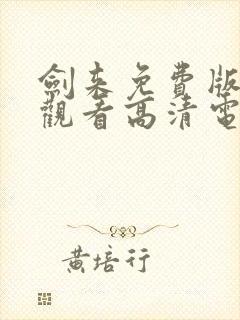 劍来免費版
觀看高清電
黃培行